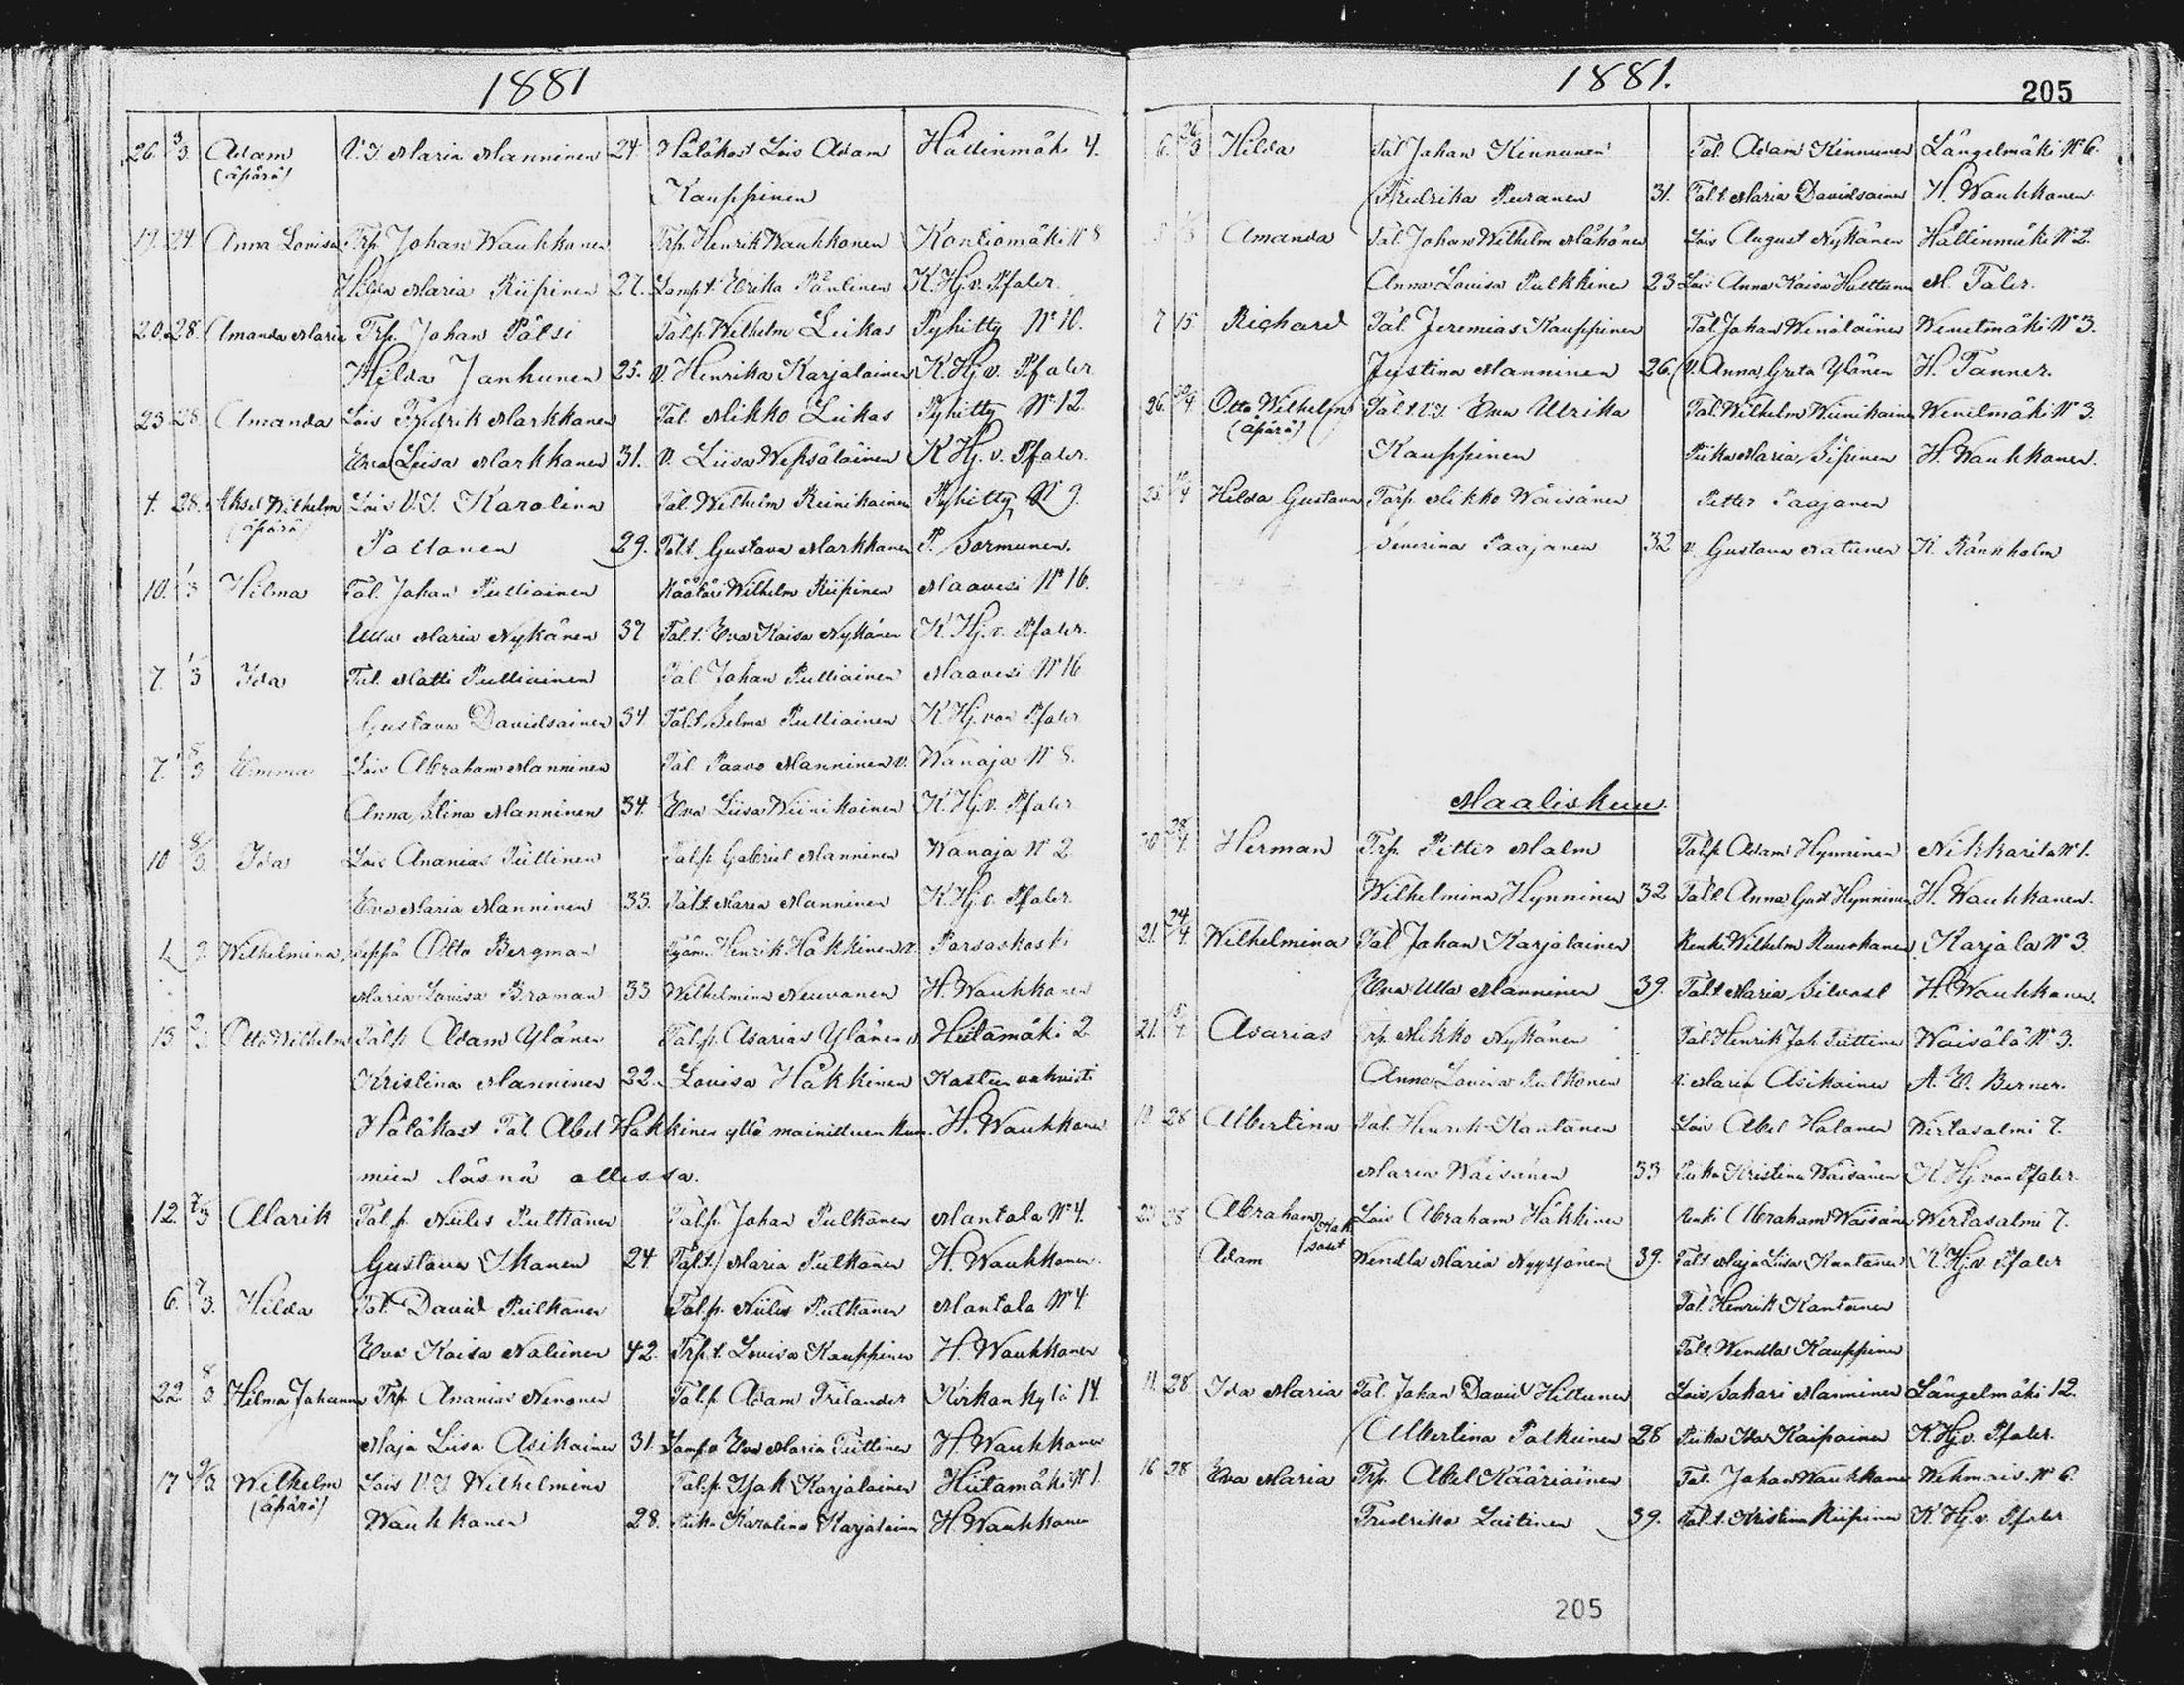 1881
26. 3/3. Adam V. I. Maria Manninen 24. Hätäkast Lois Adam Hällinmäki 4.
(äpärä) Kauppinen
19. 24. Anna Louisa Trp. Johan Waukkonen Trp. Henrik Waukkonen Kontiomäki N° 8
Hilda Maria Riipinen 27. Lamp. t. Erika Päulinen K. Hj. v. Pfaler.
20. 28. Amanda Maria Trp. Johan Pätsi Talp. Wilhelm Leikas Pyhitty N° 10.
Hilda Janhunen 25. V. Henrika Karjalainen K. Hj. v. Pfaler
23 28. Amanda Lois Fredrik Markkanen Tal. Mikko Leikas Pyhitty N° 12.
Eva Liisa Markkanen 31. V. Liisa Wepsäläinen K. Hj. v. Pfaler.
4. 28. Aksel Wilhelm Lois V. I. Karolina Tal. Wilhelm Reinikainen Pyhitty N° 9.
(äpärä) Paltanen 29. Tal.t. Gustava Markkanen P. Sormunen.
10. 1/3 Hilma Tal. Johan Putliainen Räätäri Wilhelm Riipinen Maavesi N° 16.
Ulla Maria Nykänen 37 Tal.t. Eva Kaisa Nykänen K. Hj. v. Pfaler.
7. 1/3 Ida Tal. Matti Putliainen Tal. Johan Putliainen Maavesi N° 16
Gustava Davidsainen 34. Tal.t. Selma Putliainen K. Hj. von Pfaler
7. 8/3 Emma Lois Abraham Manninen Tal. Paavo Manninen v. Wanaja N° 8.
Anna Stina Manninen 34. Eva Liisa Wiinikainen K. Hj. v. Pfaler
10 8/3. Ida Lois Ananias Tiittinen Talp. Gabriel Manninen Wanaja N° 2
Eva Maria Manninen 33. Tal.t. Maria Manninen K. Hj. v. Pfaler.
2. Wilhelmina Seppä Otto Bergman Henrik Häkkinen v. Porsaskoski
Maria Louisa Broman 33 Wilhelmina Neuvonen H. Waukkonen
13 2/3 Otto Wilhelm Talp. Adam Ylänen Tal.p. Asarias Ylänen v. Hiitämäki 2.
Kristina Manninen 22. Louisa Häkkinen Kasteen vahvisti
Hätäkast Tal. Abel Häkkinen yllä mainittuen kum. H. Waukkonen
mien läsnä ollessa.
12. 7/3 Alarik Tal.p. Niiles Pulkanen Tal.p. Johan Pulkanen Mantala N° 4.
Gustava Ikonen 24 Tal.t. Maria Pulkanen H. Waukkonen.
6. 7/3. Hilda Tal. David Pulkanen Tal.p. Niiles Pulkanen Mantala N° 4
Eva Kaisa Natunen 42. Trp.t. Louisa Kauppinen H. Waukkonen
22 8/3 Hilma Johanna Trp. Ananias Nenonen Tal.p. Adam Frilander Kirkonkylä 14.
Maja Liisa Asikainen 31. Eva Maria Tiittinen H. Waukkonen
17 9/3. Wilhelm Lois V. I. Wilhelmina Tal.p. Isak Karjalainen Hiitämäki N° 1.
(äpärä) Waukkonen 28. Piika Karolina Karjalainen H. Waukkonen
1881.
205
6. 26/3 Hilda Tal Johan Kinnunen Tal. Adam Kinnunen Längelmäki N° 6.
Fredrika Puranen 31. Tal.t. Maria Davidsainen H. Waukkonen
Amanda Tal. Johan Wilhelm Mähönen Lois August Nykänen Hällinmäki N° 2.
Anna Louisa Pulkkinen 23 Lois Anna Kaisa Hulttunen M. Faler.
7 15 Richard Tal. Jeremias Kauppinen Tal. Johan Wenäläinen Wenetmäki N° 3.
Justina Manninen 26. V. Anna Greta Ylänen H. Fanner.
26. Otto Wilhelm Tal.t. V. I. Eva Ulrika Tal. Wilhelm Wiinikainen Wenetmäki N° 3.
(äpärä) Kauppinen Piika Maria Sipinen H. Waukkonen.
25. Hilda Gustava Torp. Mikko Wäisänen Petter Paajanen
Severina Paajanen 32 v. Gustava Natunen K. Rönnholm
Maaliskuu.
20 28/4. Herman Trp. Petter Malm Tal.p. Adam Hynninen Nikkarila N° 1.
Wilhelmina Hynninen 32 Tal.t. Anna Gust Hynninen H. Waukkonen.
21. 24/4. Wilhelmina Tal Johan Karjalainen Renki Wilhelm Ruuskanen Karjala N° 3.
Eva Ulla Manninen 39. Tal.t. Maria Silvast H. Waukkonen.
21. Asarias Trp. Mikko Nykänen Tal. Henrik Joh. Tiittinen Wäisälä N° 3.
Anna Louisa Pulkonen v. Maria Asikainen A. W. Berner.
28 Albertina Tal. Henrik Kantanen Lois Abel Halonen Wirtasalmi 7.
Maria Wäisänen 33 Piika Kristina Wäisänen K. Hj. von Pfaler.
23 28 Abraham Lois Abraham Häkkinen Renki Abraham Wäisänen Wirtasalmi 7.
Adam kaksoset Wendla Maria Nyyssönen 39. Tal.t. Maja Liisa Kantanen K. Hj. v. Pfaler
Tal. Henrik Kantanen
Tal.t. Wendla Kauppinen
11. 28 Ida Maria Tal. Johan David Hiltunen Lois Sakari Manninen Längelmäki 12.
Albertina Palkiinen 28 Piika Ida Kaipainen K. Hj. v. Pfaler.
16 28 Eva Maria Trp. Abel Kääriäinen Tal. Johan Waukkonen Wehmais. N° 6.
Fredrika Laitinen 39. Tal.t. Kristina Riipinen K. Hj. v. Pfaler
205